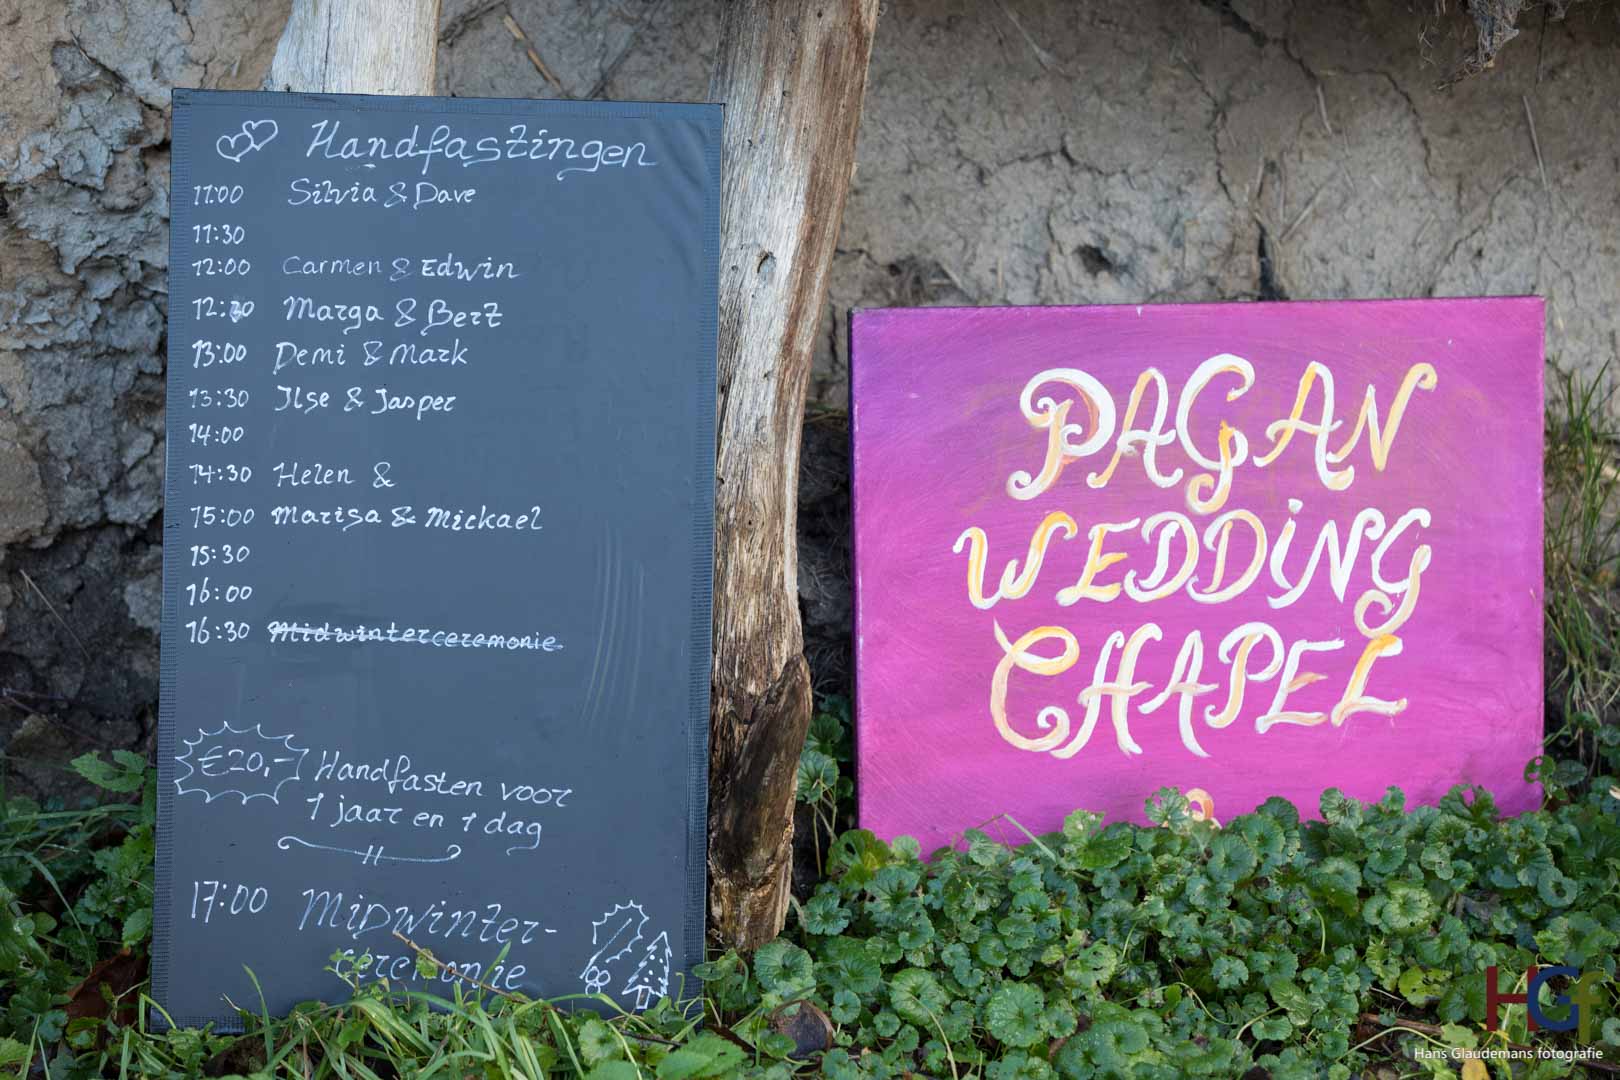 Handfastingen
11:00 Silvia & Dave
11:30
12:00 Carmen & Edwin
12:30 Marga & Bert
13:00 Demi & Mark
13:30 Ilse & Jasper
14:00
14:30 Helen &
15:00 Marisa & Mickael
15:30
16:00
16:30 Midwinterceremonie
€20,- Handfasten voor
1 jaar en 1 dag
17:00 Midwinter-
ceremonie
PAGAN
WEDDiNG
CHAPEL
HGf
Hans Glaudemans fotografie